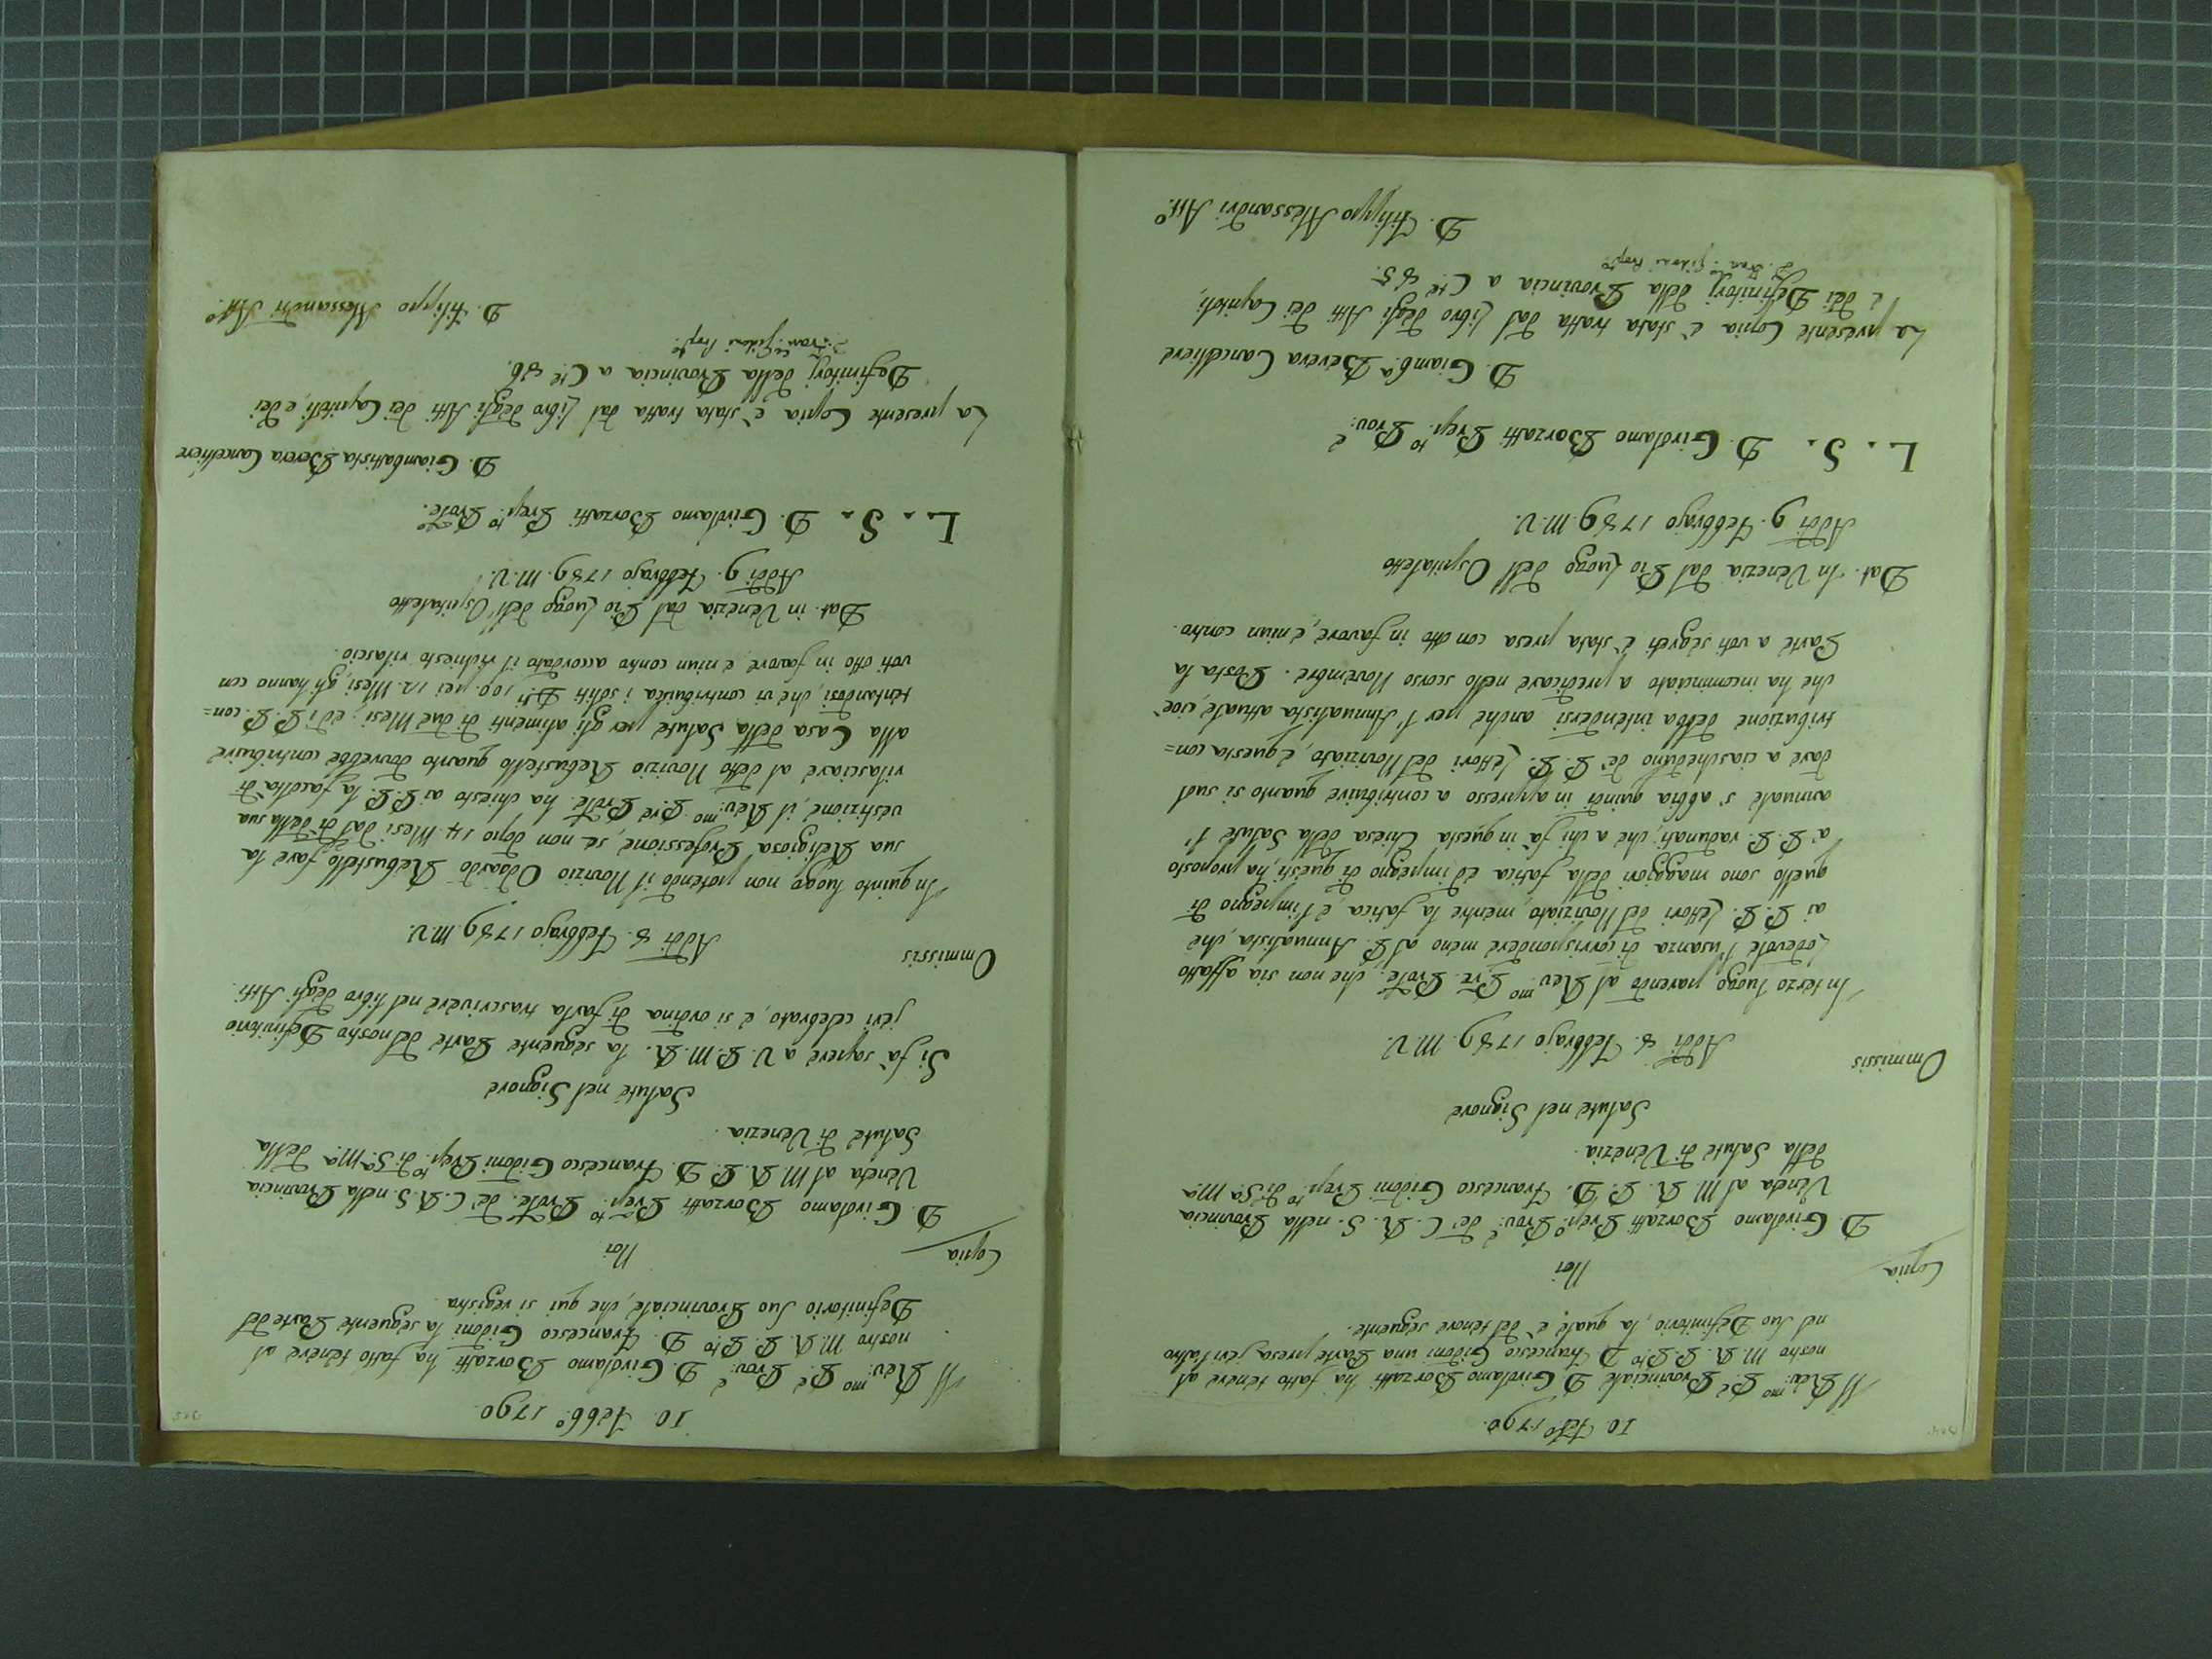 10. Febo 1790.
Il Rev:mo Pe Provinciale D. Girolamo Borzatti ha fatto tenere al
nostro M. R. P. Pto D. Francesco Gidoni una Parte presa jeri l'altro
nel suo Definitorio, la quale è del tenore seguente.
Copia
Noi
D. Girolamo Borzatti Prep.o Prov:e de' C. R. S. nella Provincia
Vineta al M. R. P. D. Francesco Gidoni Prep.to di Sa Ma
della Salute di Venezia.
Salute nel Signore
Ommissis
Addi 8. Febbrajo 1789. M. V.
In terzo luogo parendo al Rev:mo Pre. Prole. che non sia affatto
lodevole l'usanza di corrispondere meno al P. Annualista, che
ai P. P. Lettori del Noviziato, mentre la fatica, e l'impegno di
quello sono maggiori della fatica ed impegno di questi, ha proposto
a' P. P. radunati, che a chi fa in questa Chiesa della Salute l'
annuale s'abbia quindi in appresso a contribuire quanto si suol
dare a ciascheduno de' P. P. Lettori del Noviziato, e questa con=
tribuzione debba intendersi anche per l'Annualista attuale, cioè
che ha incominciato a predicare nello scorso Novembre. Posta la
Parte a voti segreti è stata presa con otto in favore, e niun contro.
Dat. In Venezia dal Pio Luogo dell Ospitaletto
Addi 9. Febbrajo 1789. M. V.
L. S. D. Girolamo Borzatti Prep.to Prov:e
D. Giamb.a Bevera Cancelliere
La presente Copia è stata tratta dal Libro degli Atti dei Capitoli,
e dei Definitorj della Provincia a C.te 85.
D. Fran.co Gidoni Prep.to
D. Filippo Alessandri Att.o
10. Febb.o 1790.
Il Rev:mo Pe Prov:e D. Girolamo Borzatti ha fatto tenere al
nostro M. R. P. Pto D. Francesco Gidoni la seguente Parte del
Definitorio suo Provinciale, che qui si registra.
Copia
Noi
D. Girolamo Borzatti Prep.to Prole. de' C. R. S. nella Provincia
Vineta al M. R. P. D. Francesco Gidoni Prep.to di Sa Ma della
Salute di Venezia.
Salute nel Signore
Si fa sapere a V. P. M. R. la seguente Parte del nostro Definitorio
jeri celebrato, e si ordina di farla trascrivere nel libro degli Atti.
Ommissis
Addi 8. Febbrajo 1789. M. V.
In quinto luogo non potendo il Novizio Odoardo Rebustello fare la
sua Religiosa Professione, se non dopo 14. Mesi dal dì della sua
vestizione, il Rev:mo Pre. Prole. ha chiesto ai P. P. la facoltà di
rilasciare al detto Novizio Rebustello quanto dovrebbe contribuire
alla Casa della Salute per gli alimenti di due Mesi; ed i P. P. con=
tentandosi, che vi contribuisca i soliti D.ti 100 pei 12. Mesi, gli hanno con
voti otto in favore, e niun contro accordato il richiesto rilascio.
Dat. in Venezia dal Pio Luogo dell'Ospitaletto
Addi 9. Febbrajo 1789. M. V.
L. S. D. Girolamo Borzatti Prep.to Prole.
D. Giambattista Bevera Cancelliere
La presente Copia è stata tratta dal Libro degli Atti dei Capitoli, e dei
Definitorj della Provincia a C.te 86.
D. Fran.co Gidoni Prep.to
D. Filippo Alessandri Att.o